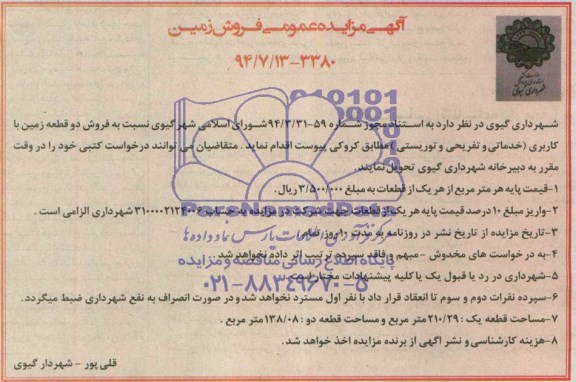 آگهی مزایده عمومی فروش زمین
۹۴/۷/۱۳-۳۳۸۰
شهرداری گیوی در نظر دارد به استناد مجوز شماره ۵۹-۹۴/۳/۳۱ شورای اسلامی شهر گیوی نسبت به فروش دو قطعه زمین با
کاربری (خدماتی و تفریحی و توریستی) مطابق کروکی پیوست اقدام نماید. متقاضیان می توانند درخواست کتبی خود را در وقت
مقرر به دبیرخانه شهرداری گیوی تحویل نمایند.
۱-قیمت پایه هر متر مربع از هر یک از قطعات به مبلغ ۳/۵۰۰/۰۰۰ ریال.
۲-واریز مبلغ ۱۰ درصد قیمت پایه هر یک از قطعات جهت شرکت در مزایده به حساب ۳۱۰۰۰۰۲۱۲۴۰۰۶ شهرداری الزامی است.
۳-تاریخ مزایده از تاریخ نشر در روزنامه به مدت ۱۰ روز تمام
۴-به درخواست های مخدوش - مبهم و فاقد سپرده ترتیب اثر داده نخواهد شد.
۵-شهرداری در رد یا قبول یک یا کلیه پیشنهادات مختار است.
۶-سپرده نفرات دوم و سوم تا انعقاد قرار داد با نفر اول مسترد نخواهد شد و در صورت انصراف به نفع شهرداری ضبط میگردد.
۷-مساحت قطعه یک: ۲۱۰/۲۹ متر مربع و مساحت قطعه دو: ۱۳۸/۰۸ متر مربع.
۸-هزینه کارشناسی و نشر اگهی از برنده مزایده اخذ خواهد شد.
قلی پور - شهردار گیوی
شهرداری گیوی
010101
0001
ParsNamadData
مرکز فرآوری اطلاعات پارس نماد داده ها
پایگاه اطلاع رسانی مناقصه و مزایده
۰۲۱-۸۸۳۴۹۶۷۰-۵